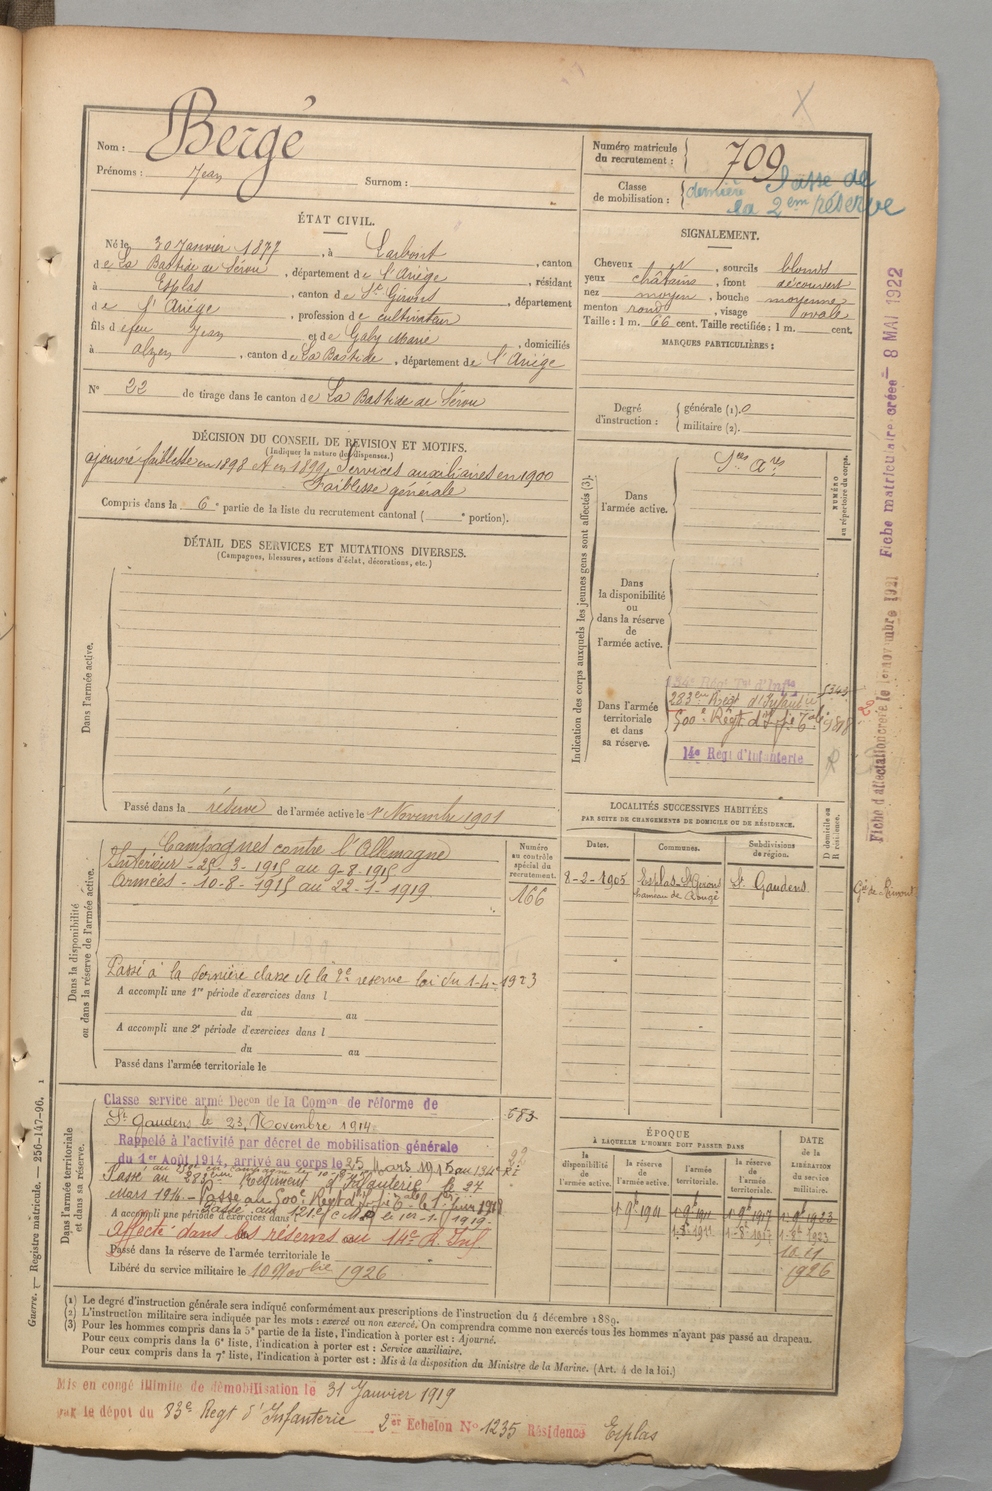 Nom : Bergé
Prénoms : Jean Surnom :
Numéro matricule du recrutement : 709
Classe de mobilisation : dernière Classe de
la 2em réserve
ÉTAT CIVIL.
Né le 30 Janvier 1877, à Larbont, canton
de La Bastide de Sérou, département de l'Ariége, résidant
à Esplas, canton de St Girons, département
de l'Ariége, profession de cultivateur
fils de feu Jean et de Galy Marie, domiciliés
à alzen, canton de La Bastide, département de l'Ariége
N° 22 de tirage dans le canton de La Bastide de Sérou
SIGNALEMENT.
Cheveux , sourcils blonds
yeux châtains, front découvert
nez moyen, bouche moyenne
menton rond, visage ovale
Taille : 1 m. 66 cent. Taille rectifiée : 1 m. cent.
MARQUES PARTICULIÈRES :
Degré d'instruction : générale (1). 0
militaire (2).
DÉCISION DU CONSEIL DE REVISION ET MOTIFS.
(Indiquer la nature des dispenses.)
ajourné faiblesse en 1898 et en 1899, Services auxiliaires en 1900
Faiblesse générale
Compris dans la 6e partie de la liste du recrutement cantonal ( e portion).
DÉTAIL DES SERVICES ET MUTATIONS DIVERSES.
(Campagnes, blessures, actions d'éclat, décorations, etc.)
Dans l'armée active.
Passé dans la réserve de l'armée active le 1er Novembre 1901
Indication des corps auxquels les jeunes gens sont affectés (3).
NUMÉRO au répertoire du corps.
Dans l'armée active.
Sces Ares
Dans la disponibilité ou dans la réserve de l'armée active.
Dans l'armée territoriale et dans sa réserve.
283em Régt d'Infanterie
500e Régt d'Inf. Tale
14e Régt d'Infanterie
Fiche d'affectation créée le 1er novembre 1921 Fiche matriculaire créée 8 MAI 1922
Dans la disponibilité ou dans la réserve de l'armée active.
Campagnes contre l'Allemagne
Intérieur - 25-3-1915 au 9-8-1915
Armées - 10-8-1915 au 22-1-1919
Passé à la dernière classe de la 2e reserve loi du 1-4-1923
A accompli une 1re période d'exercices dans l
du au
A accompli une 2e période d'exercices dans l
du au
Passé dans l'armée territoriale le
Numéro au contrôle spécial du recrutement.
166
LOCALITÉS SUCCESSIVES HABITÉES
PAR SUITE DE CHANGEMENTS DE DOMICILE OU DE RÉSIDENCE.
Dates. Communes. Subdivisions de région. D domicile ou R résidence.
8-2-1905 Esplas - St Girons St Gaudens
hameau de Rougé
Dans l'armée territoriale et dans sa réserve.
Classe service armé Decon de la Comon de réforme de
St Gaudens le 23 Novembre 1914
Rappelé à l'activité par décret de mobilisation générale
du 1er Août 1914, arrivé au corps le 25 Mars 1915
Passé au 283em Régiment d'Infanterie le 27
Mars 1916 - Passe au 500e Régt d'Inf. Tale le 1er Juin 1918
Passé au 121e le 1er-1-1919
A accompli une période d'exercices dans l
affecté dans les réserves au 14e R. Inf
Passé dans la réserve de l'armée territoriale le
Libéré du service militaire le 10 Novbre 1926
683
ÉPOQUE
À LAQUELLE L'HOMME DOIT PASSER DANS
DATE DE LA LIBÉRATION du service militaire.
la disponibilité de l'armée active. la réserve de l'armée active. l'armée territoriale. la réserve de l'armée territoriale.
1 9bre 1901 1 9bre 1911 1 9bre 1917 1 9bre 1923
1-8-1911 1-8-1917 1-8-1923
1926
(1) Le degré d'instruction générale sera indiqué conformément aux prescriptions de l'instruction du 4 décembre 1889.
(2) L'instruction militaire sera indiquée par les mots : exercé ou non exercé. On comprendra comme non exercés tous les hommes n'ayant pas passé au drapeau.
(3) Pour les hommes compris dans la 5e partie de la liste, l'indication à porter est : Ajourné.
Pour ceux compris dans la 6e liste, l'indication à porter est : Service auxiliaire.
Pour ceux compris dans la 7e liste, l'indication à porter est : Mis à la disposition du Ministre de la Marine. (Art. 4 de la loi.)
Guerre. — Registre matricule. — 256-147-96.
Mis en congé illimité de démobilisation le 31 Janvier 1919
par le dépot du 83e Regt d'Infanterie 2er Echelon No 1235 Résidence Esplas